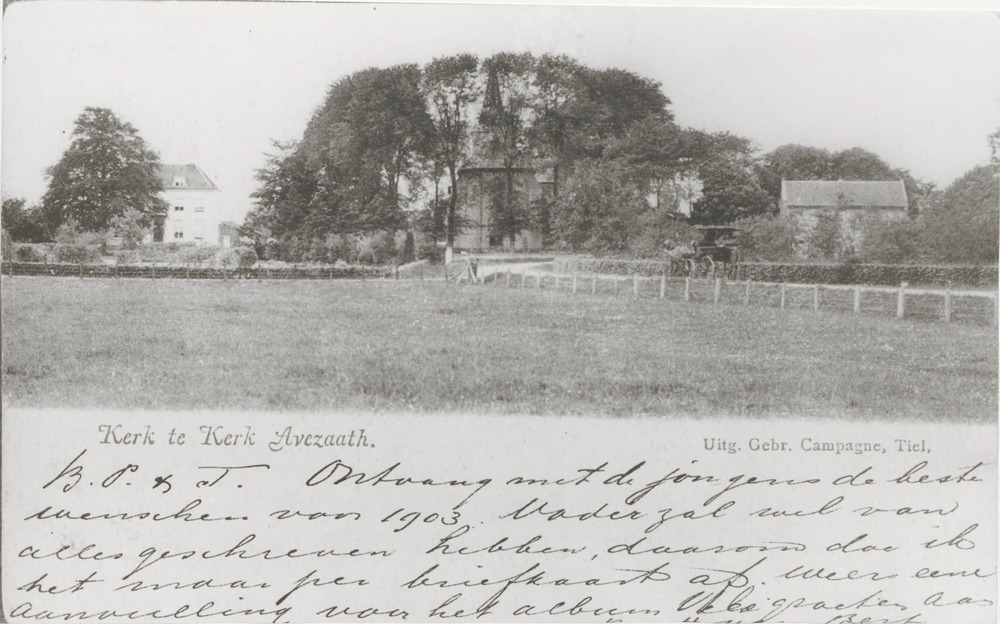 Kerk te Kerk Avezaath.
Uitg. Gebr. Campagne, Tiel,
B. P. & T. Ontvang met de jongens de beste
wenschen voor 1903. Vader zal wel van
alles geschreven hebben, daarom doe ik
het maar per briefkaart af. weer eene
aanvulling voor het album Vele groeten aas
Bert